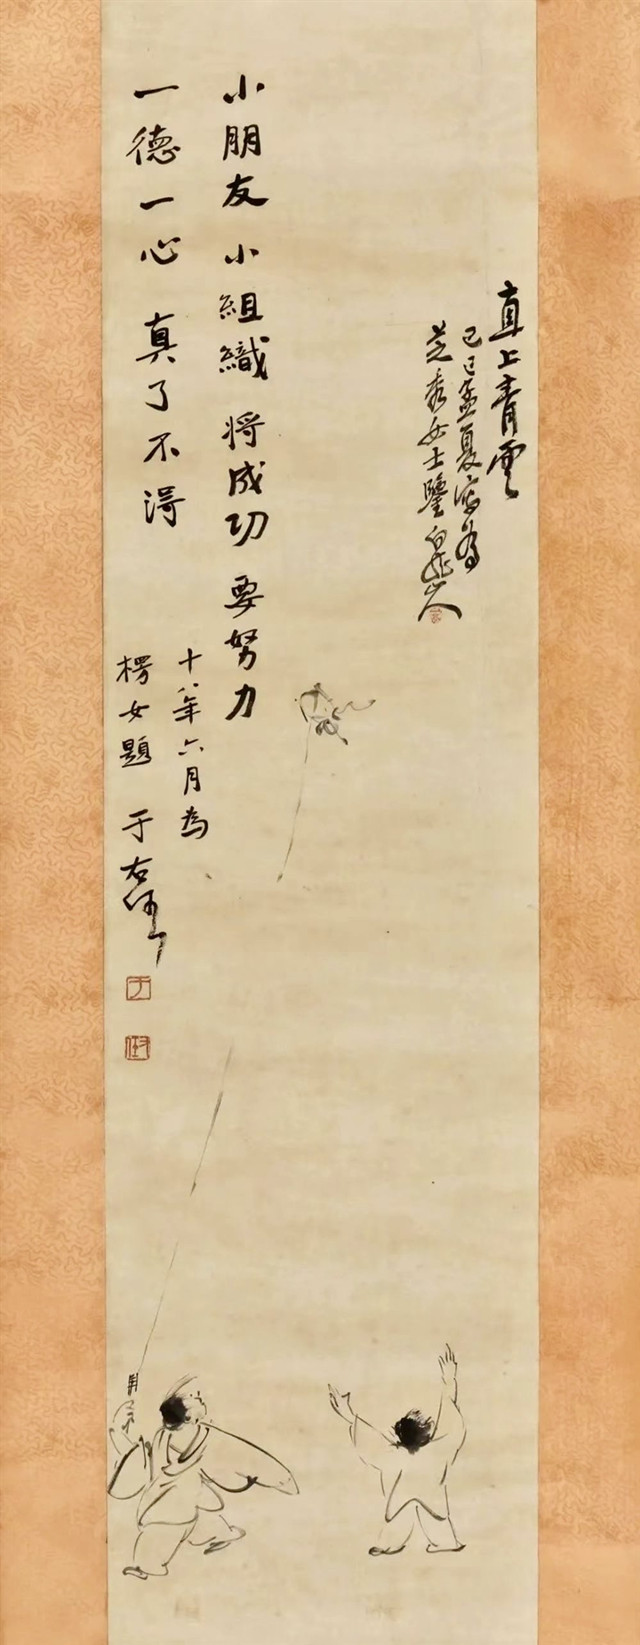 直上青雲
己巳孟夏寫為
芝秀女士鑒 白龍山人
小朋友 小組織 将成功 要努力
一德一心 真了不得
十八年六月為
楞女題 于右任